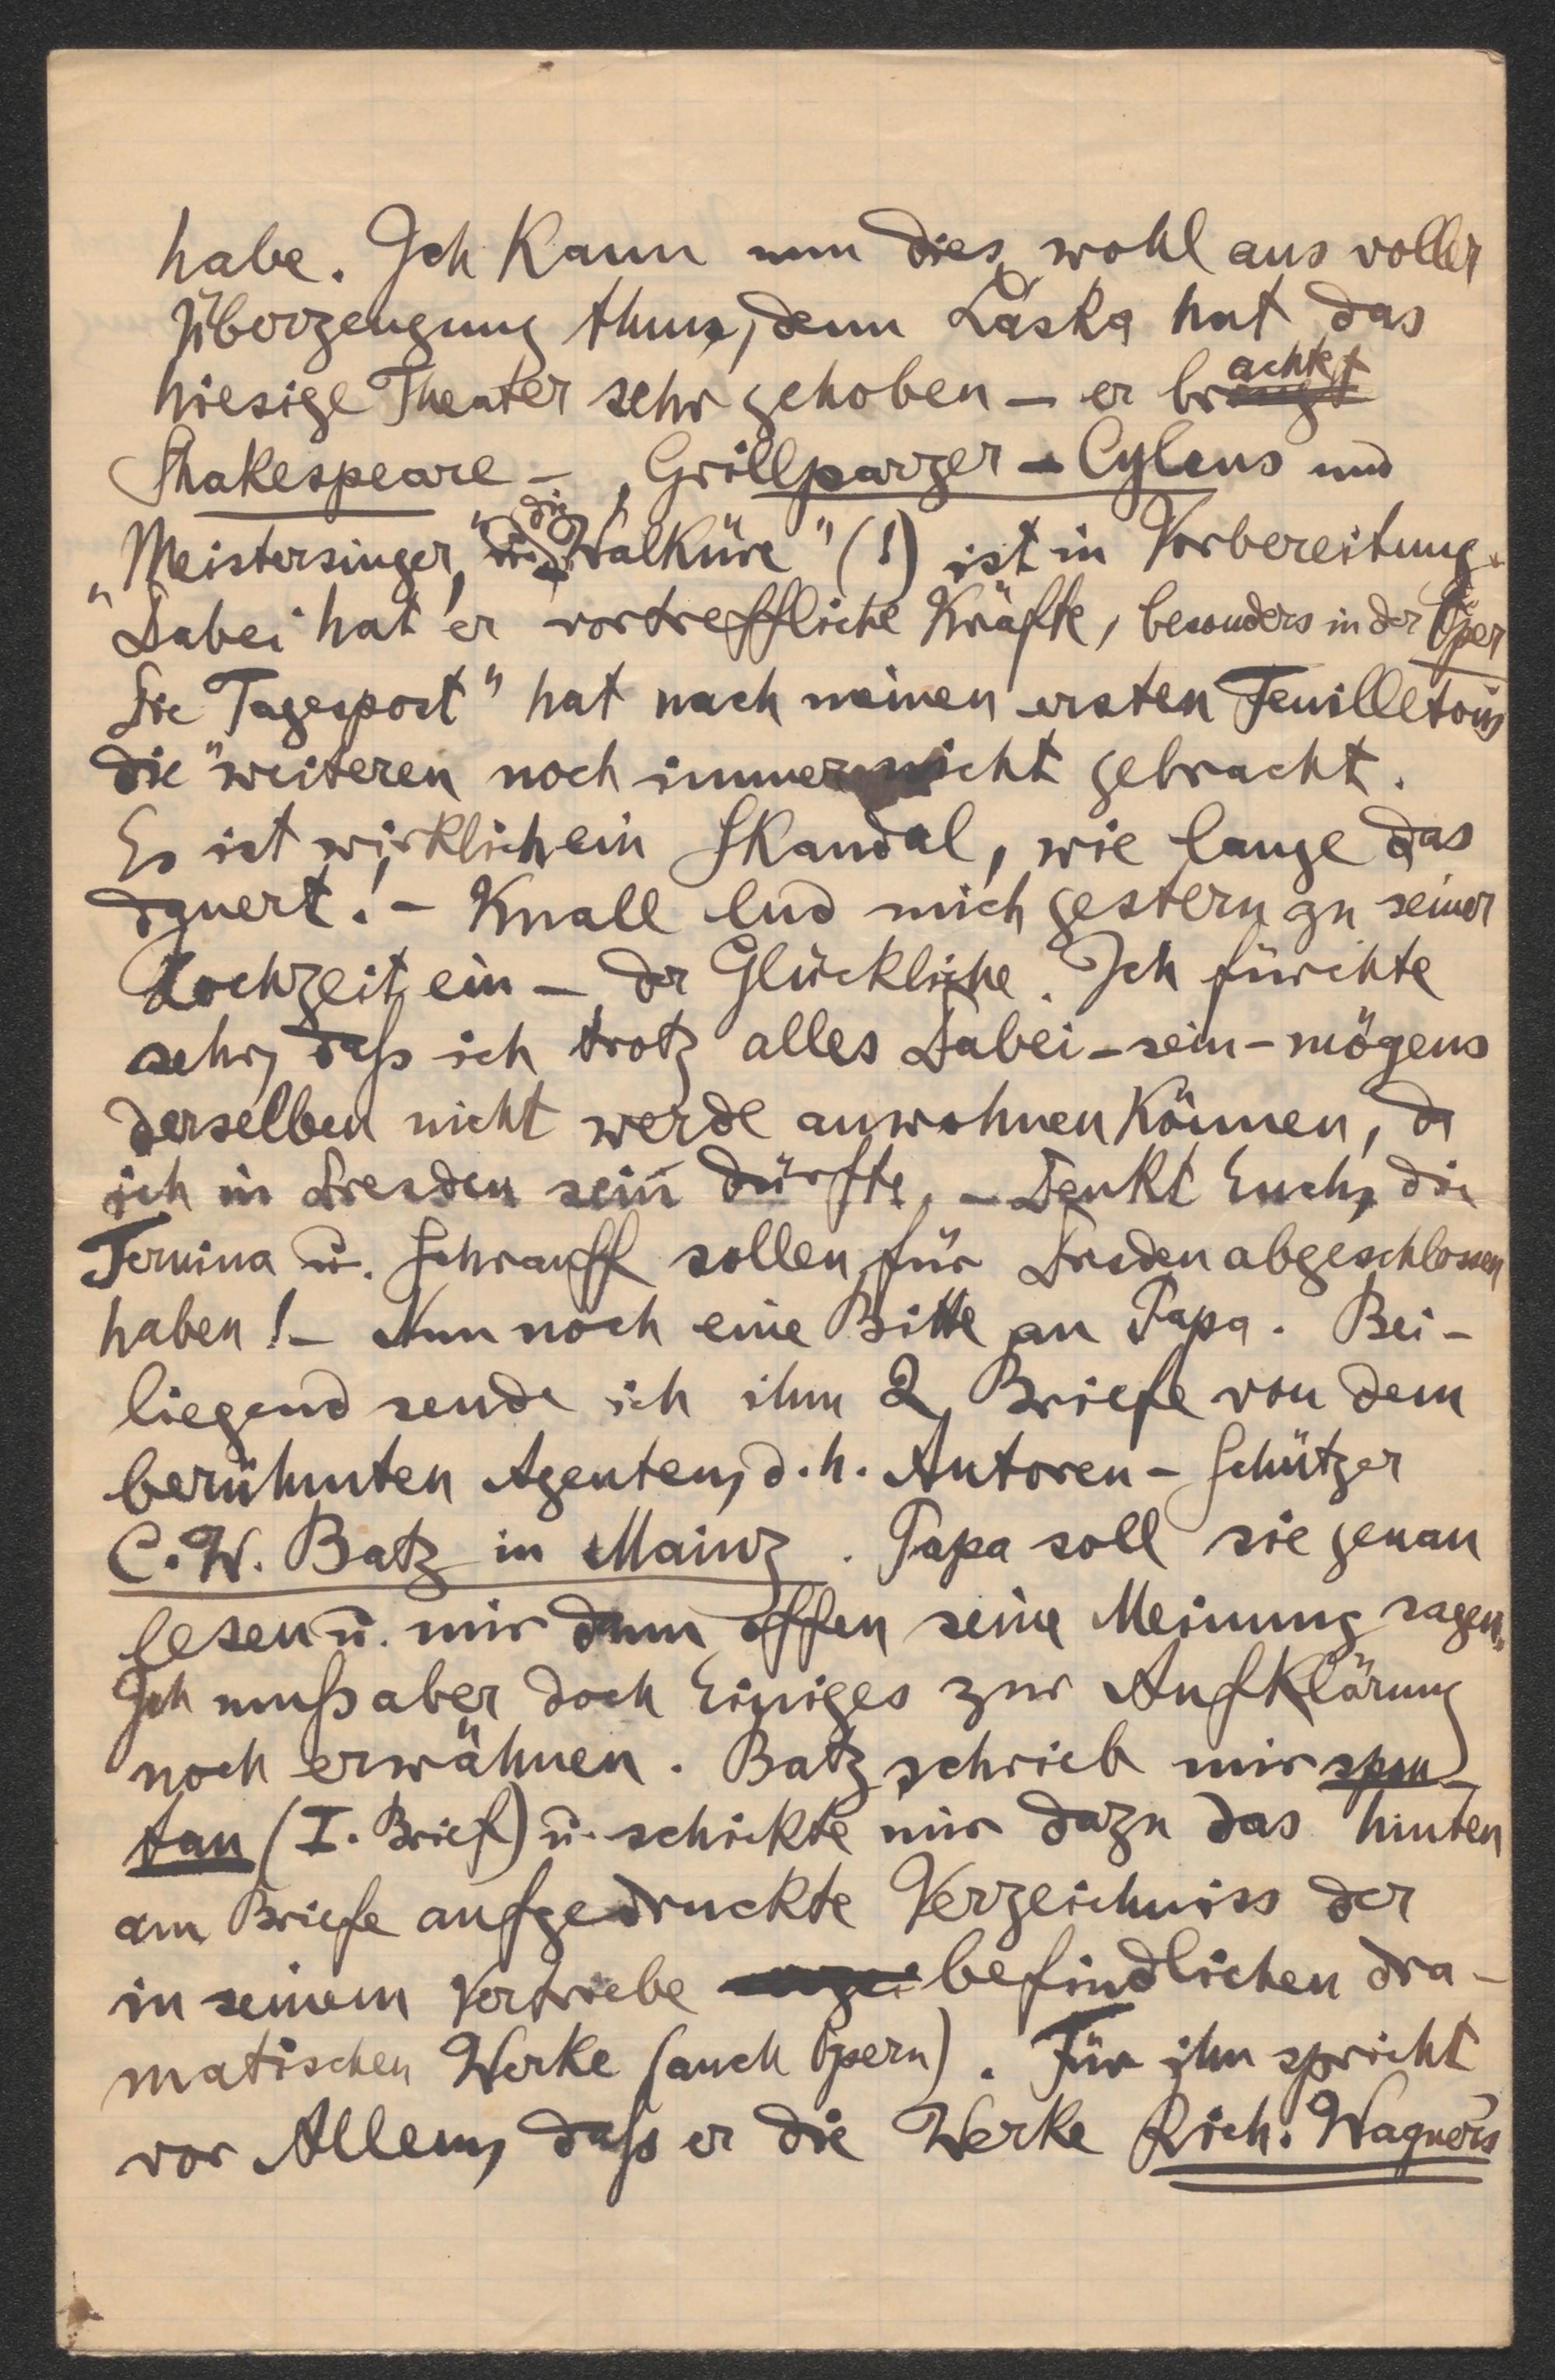 habe. Ich kann nun dies wohl aus voller
Überzeugung thun, denn Laska hat das
hiesige Theater sehr gehoben – er brachte
Shakespeare –, Grillparzer – Cylens und
„Meistersinger", „die Walküre" (!) ist in Vorbereitung.
Dabei hat er vortreffliche Kräfte, besonders in der Oper
Die „Tagespost" hat nach meinen ersten Feuilletons
die weiteren noch immer nicht gebracht.
Es ist wirklich ein Skandal, wie lange das
dauert! – Knall lud mich gestern zu seiner
Hochzeit ein – der Glückliche. Ich fürchte
sehr, daß ich trotz alles Dabei-sein-mögens
derselben nicht werde anwohnen können, da
ich in Dresden sein dürfte. – Denkt Euch, die
Ternina u. Schrauff sollen für Dresden abgeschlossen
haben! – Nun noch eine Bitte an Papa. Bei-
liegend sende ich ihm 2 Briefe von dem
berühmten Agenten, d. h. Autoren-Schützer
C. W. Batz in Mainz. Papa soll sie genau
lesen u. mir dann offen seine Meinung sagen.
Ich muß aber doch Einiges zur Aufklärung
noch erwähnen. Batz schrieb mir spon-
tan (I. Brief) u. schickte mir dazu das hinten
am Briefe aufgedruckte Verzeichniss der
in seinem Vertriebe befindlichen dra-
matischen Werke (auch Opern). Für ihn spricht
vor Allem, daß er die Werke Rich. Wagner's